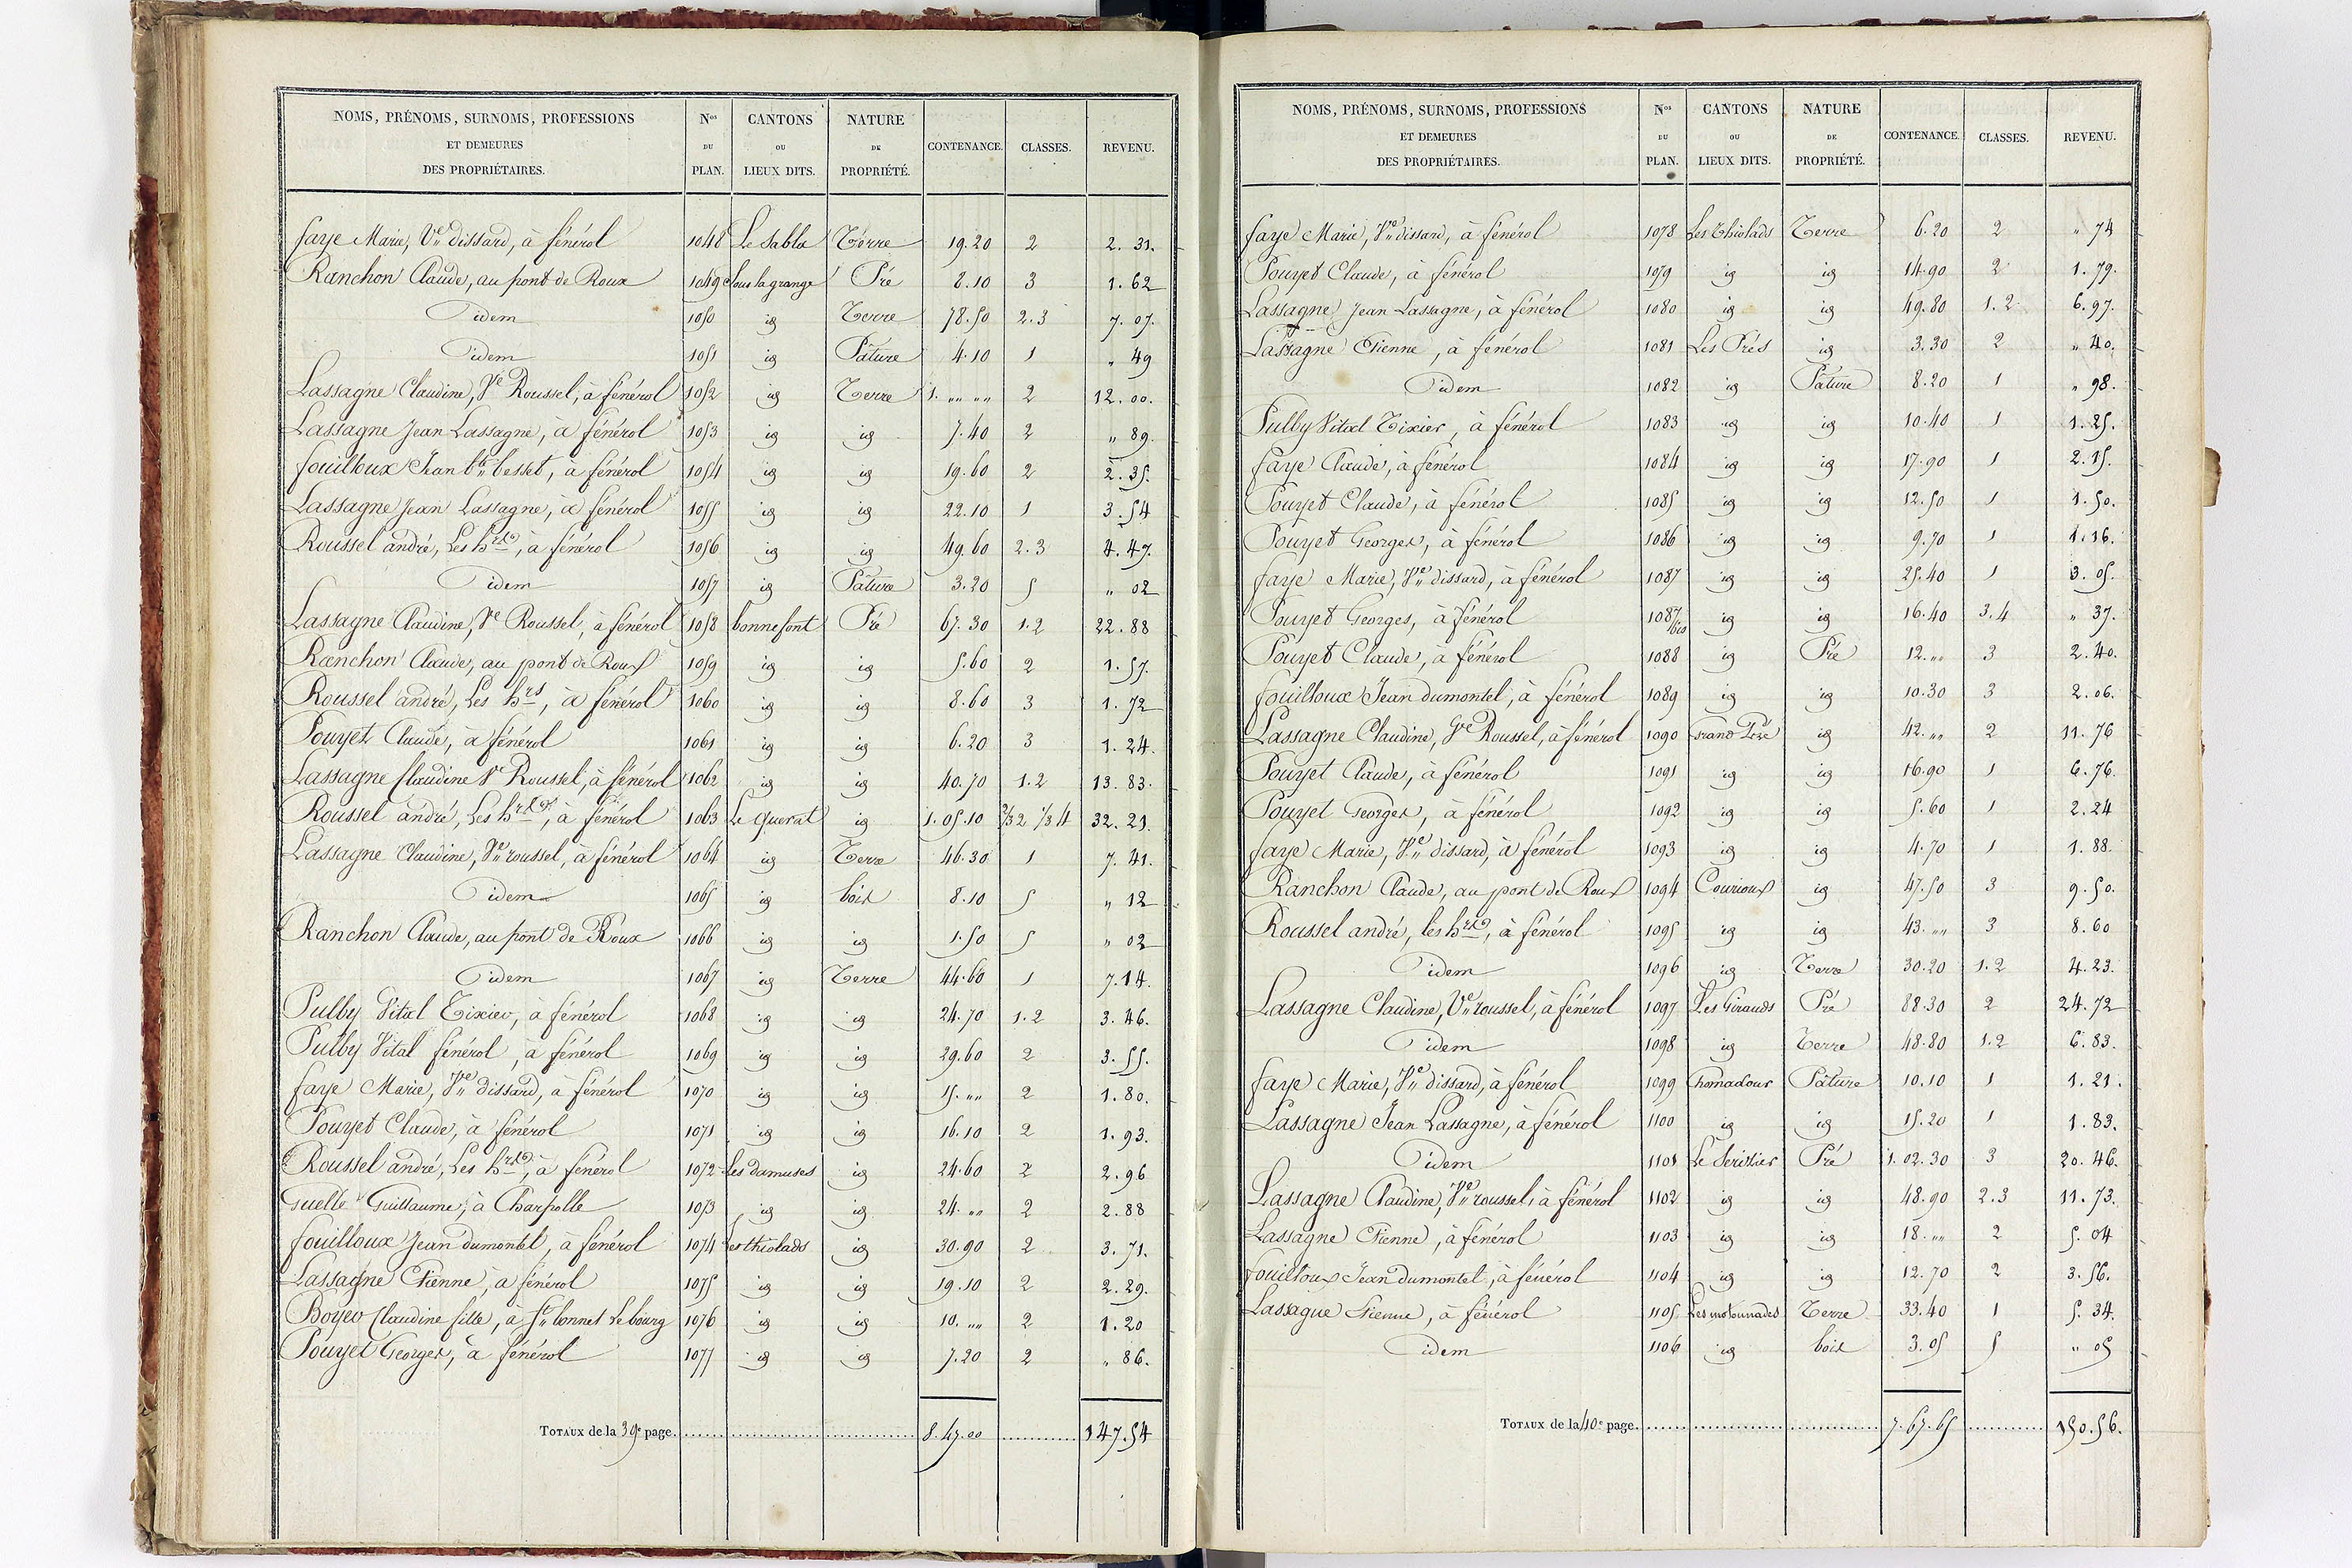 NOMS, PRÉNOMS, SURNOMS, PROFESSIONS ET DEMEURES DES PROPRIÉTAIRES. Nos DU PLAN. CANTONS OU LIEUX DITS. NATURE DE PROPRIÉTÉ. CONTENANCE. CLASSES. REVENU.
faye Marie, Ve dissard, à fénérol 1048 Le Sabla Terre 19.20 2 2.31.
Ranchon Claude, au pont de Roux 1049 Sous la grange Pré 8.10 3 1.62
idem 1050 id Terre 78.50 2.3 7.07.
idem 1051 id Pâture 4.10 1 " 49
Lassagne Claudine, Ve Roussel, à fénérol 1052 id Terre 1. "" "" 2 12.00.
Lassagne Jean Lassagne, à fénérol 1053 id id 7.40 2 " 89.
fouilloux Jean bte besset, à fénérol 1054 id id 19.60 2 2.35.
Lassagne Jean Lassagne, à fénérol 1055 id id 22.10 1 3.54
Roussel andré, Les hrs, à fénérol 1056 id id 49.60 2.3 4.47.
idem 1057 id Pâture 3.20 5 " 02
Lassagne Claudine, Ve Roussel, à fénérol 1058 bonnefont Pré 67.30 1.2 22.88
Ranchon Claude, au pont de Roux 1059 id id 5.60 2 1.57.
Roussel andré, Les hrs, à fénérol 1060 id id 8.60 3 1.72
Pouyet Claude, à fénérol 1061 id id 6.20 3 1.24.
Lassagne Claudine Ve Roussel, à fénérol 1062 id id 40.70 1.2 13.83.
Roussel andré, Les hrs, à fénérol 1063 Le querat id 1.05.10 2/3 2 1/3 4 32.21.
Lassagne Claudine, Ve roussel, à fénérol 1064 id Terre 46.30 1 7.41.
idem 1065 id bois 8.10 5 " 12
Ranchon Claude, au pont de Roux 1066 id id 1.50 5 " 02
idem 1067 id Terre 44.60 1 7.14.
Pulby Vital Tixier, à fénérol 1068 id id 24.70 1.2 3.46.
Pulby Vital fénérol, à fénérol 1069 id id 29.60 2 3.55.
faye Marie, Ve dissard, à fénérol 1070 id id 15. "" 2 1.80.
Pouyet Claude, à fénérol 1071 id id 16.10 2 1.93.
Roussel andré, Les hrs, à fénérol 1072 Les damuses id 24.60 2 2.96
Guelle Guillaume, à Charpolle 1073 id id 24. "" 2 2.88
fouilloux Jean dumontel, à fénérol 1074 Les thiolads id 30.90 2 3.71.
Lassagne Etienne, à fénérol 1075 id id 19.10 2 2.29.
Boyer Claudine fille, à St bonnet Le bourg 1076 id id 10. "" 2 1.20
Pouyet Georges, à fénérol 1077 id id 7.20 2 " 86.
TOTAUX de la 39e page. 8.47.00 147.54
NOMS, PRÉNOMS, SURNOMS, PROFESSIONS ET DEMEURES DES PROPRIÉTAIRES. Nos DU PLAN. CANTONS OU LIEUX DITS. NATURE DE PROPRIÉTÉ. CONTENANCE. CLASSES. REVENU.
faye Marie, Ve dissard, à fénérol 1078 Les Thiolads Terre 6.20 2 " 74
Pouyet Claude, à fénérol 1079 id id 14.90 2 1.79.
Lassagne Jean Lassagne, à fénérol 1080 id id 49.80 1.2 6.97.
Lassagne Etienne, à fénérol 1081 Les Prés id 3.30 2 " 40.
idem 1082 id Pâture 8.20 1 " 98.
Pulby Vital Tixier, à fénérol 1083 id id 10.40 1 1.25.
faye Claude, à fénérol 1084 id id 17.90 1 2.15.
Pouyet Claude, à fénérol 1085 id id 12.50 1 1.50.
Pouyet Georges, à fénérol 1086 id id 9.70 1 1.16.
faye Marie, Ve dissard, à fénérol 1087 id id 25.40 1 3.05.
Pouyet Georges, à fénérol 1087 bis id id 16.40 3.4 " 37.
Pouyet Claude, à fénérol 1088 id Pré 12. "" 3 2.40.
fouilloux Jean dumontel, à fénérol 1089 id id 10.30 3 2.06.
Lassagne Claudine, Ve Roussel, à fénérol 1090 Grand Pré id 42. "" 2 11.76
Pouyet Claude, à fénérol 1091 id id 16.90 1 6.76.
Pouyet Georges, à fénérol 1092 id id 5.60 1 2.24
faye Marie, Ve dissard, à fénérol 1093 id id 4.70 1 1.88.
Ranchon Claude, au pont de Roux 1094 Courioux id 47.50 3 9.50.
Roussel andré, les hrs, à fénérol 1095 id id 43. "" 3 8.60
idem 1096 id Terre 30.20 1.2 4.23.
Lassagne Claudine, Ve roussel, à fénérol 1097 Les Girauds Pré 88.30 2 24.72
idem 1098 id Terre 48.80 1.2 6.83.
faye Marie, Ve dissard, à fénérol 1099 Chomadour Pâture 10.10 1 1.21.
Lassagne Jean Lassagne, à fénérol 1100 id id 15.20 1 1.83.
idem 1101 Le Pré 1.02.30 3 20.46.
Lassagne Claudine, Ve roussel, à fénérol 1102 id id 48.90 2.3 11.73.
Lassagne Etienne, à fénérol 1103 id id 18. "" 2 5.04
fouilloux Jean dumontel, à fénérol 1104 id id 12.70 2 3.56.
Lassagne Etienne, à fénérol 1105 Les motounades Terre 33.40 1 5.34.
idem 1106 id bois 3.05 5 " 05
TOTAUX de la 40e page. 7.67.65 150.56.